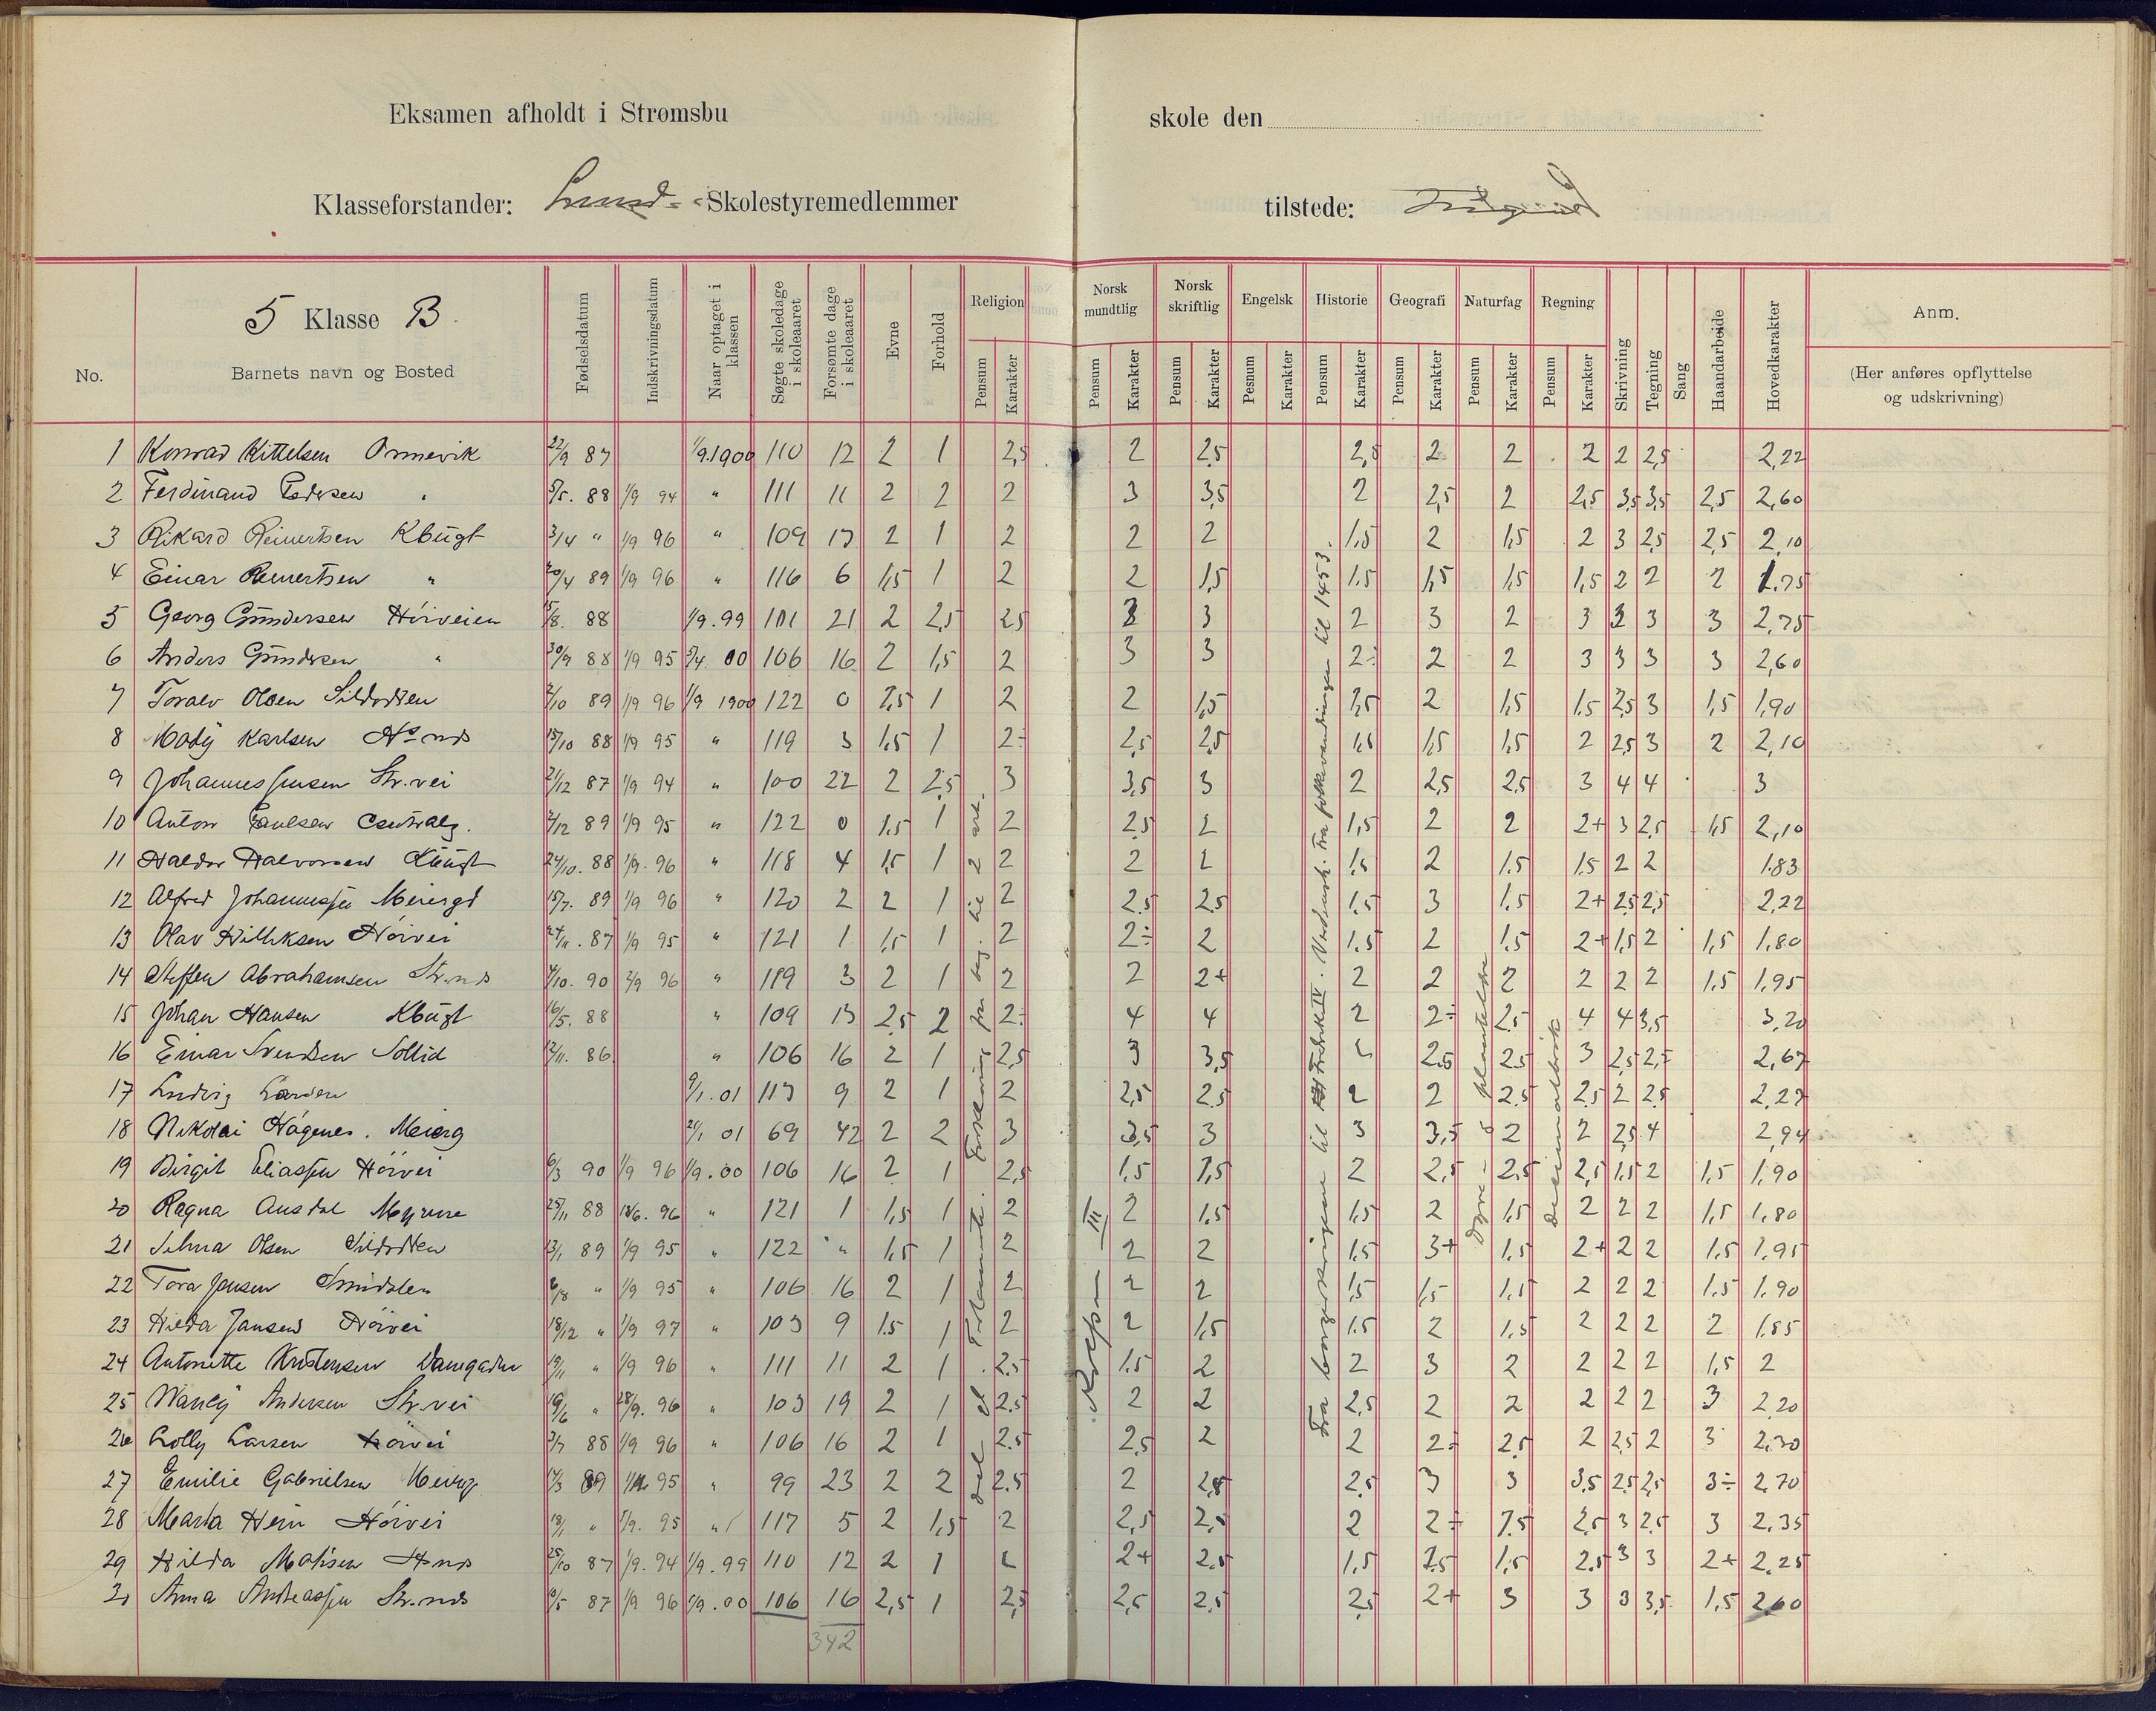 Eksamen afholdt i Strømsbu skole den
Klasseforstander: Lund Skolestyremedlemmer tilstede:
5 Klasse B.
No. Barnets navn og Bosted Fødselsdatum Indskrivningsdatum Naar optaget i klassen Søgte skoledage i skoleaaret Forsømte dage i skoleaaret Evne Forhold Religion Pensum Karakter Norsk mundtlig Pensum Karakter Norsk skriftlig Pensum Karakter Engelsk Pesnum Karakter Historie Pensum Karakter Geografi Pensum Karakter Naturfag Pensum Karakter Regning Pensum Karakter Skrivning Tegning Sang Haandarbeide Hovedkarakter Anm. (Her anføres opflyttelse og udskrivning)
1 Konrad Kittelsen Ormevik 22/9 87 1/9.1900 110 12 2 1 2,5 2 2,5 2,5 2 2 2 2 2,5 2,22
2 Ferdinand Pedersen " 5/5. 88 1/9 94 " 111 11 2 2 2 3 3,5 2 2,5 2 2,5 3,5 3,5 2,5 2,60
3 Rikard Reinertsen Kbugt 3/4 " 1/9 96 " 109 13 2 1 2 2 2 1,5 2 1,5 2 3 2,5 2,5 2,10
4 Einar Reinertsen " 20/4 89 1/9 96 " 116 6 1,5 1 2 2 1,5 1,5 1,5 1,5 1,5 2 2 2 1.75
5 Georg Gundersen Hörveien 15/8. 88 1/9.99 101 21 2 2,5 2,5 3 3 2 3 2 3 3 3 3 2,75
6 Anders Gundersen " 30/9 88 1/9 95 00 106 16 2 1,5 2 3 3 2÷ 2 2 3 3 3 3 2,60
7 Toralv Olsen 2/10 89 1/9 96 1/9 1900 122 0 2,5 1 2 2 1,5 2,5 2 1,5 1.5 2,5 3 1,5 1,90
8 Karlsen 15/10 88 1/9 95 " 119 3 1,5 1 2÷ 2,5 2,5 1,5 1,5 1,5 2 2,5 3 2 2,10
9 Johannes Jensen Str.vei 21/12 87 1/9 94 " 100 22 2 2,5 3 3,5 3 2 2,5 2,5 3 4 4 3
10 Anton Paulsen 2/12 89 1/9 95 " 122 0 1.5 1 2 2.5 2 1,5 2 2 2+ 3 2,5 1,5 2,10
11 Haldor Halvorsen Kbugt 24/10. 88 1/9. 96 " 118 4 1,5 1 2 2 2 1,5 2 1.5 1.5 2 2 1.83
12 Alfred Johannessen 15/7. 89 1/9 96 " 120 2 2 1 2 2.5 2.5 1.5 3 1.5 2+ 2,5 2,5 2,22
13 Olav Hörvei 24/11. 87 1/9 95 " 121 1 1,5 1 2 2÷ 2 1.5 2 1.5 2+ 1,5 2 1,5 1,80
14 Steffen Abrahamsen 4/10. 90 2/9 96 " 119 3 2 1 2 2 2+ 2 2 2 2 2 2 1.5 1,95
15 Johan Hansen Kbugt 16/5. 88 " 109 13 2.5 2 2÷ 4 4 2 2÷ 2.5 4 4 3,5 3,20
16 Einar Svendsen Sollid 12/11. 86. " 106 16 2 1 2,5 3 3,5 2 2.5 2.5 3 2,5 2,5 2,67
17 Ludvig Larsen 9/1.01 113 9 2 1 2 2,5 2.5 2 2 2.5 2.5 2 2.5 2.27
18 Nikolai Högenes. Meierg 21/1 01 69 42 2 2 3 3,5 3 3 3,5 2 2 2,5 4 2,94
19 Birgit Eliassen Hörvei 6/3 90 1/9 96 1/9.00 106 16 2 1 2,5 1,5 1,5 2 2,5 2,5 2,5 1,5 2 1,5 1,90
20 Ragna Ausdal Myrene 25/11 88 18/6. 96 " 121 1 1,5 1 2 2 1.5 1,5 2 1,5 2 2 2 1,5 1,80
21 Selma Olsen 13/1 89 1/9 95 " 122 " 1.5 1 2 2 2 1.5 3+ 1,5 2+ 2 2 1.5 1,95
22 Tora Jensen 6/8 " 1/9 95 " 106 16 2 1 2 2 2 1,5 1,5 1,5 2 2 2 1.5 1.90
23 Hilda Jansen Hörvei 18/12 " 1/9 97 " 103 9 1.5 1 2 2 1,5 1.5 2 1,5 2 2 2 2 1.85
24 Antonette Kristensen 19/11 " 1/9 96 " 111 11 2 1 2.5 1.5 2 2 3 2 2 2 2 1,5 2
25 Nancy Andersen Str.vei 19/6 " 28/9. 96 " 103 19 2 1 2.5 2 2 2,5 2 2 2 2 2 3 2.20
26 Lolly Larsen Hörvei 3/7 88 1/9 96 " 106 16 2 1 2.5 2,5 2 2 2÷ 2.5 2 2,5 2 3 2.30
27 Emilie Gabrielsen 14/3 89 95 " 99 23 2 2 2.5 2 2,5 2.5 3 3 3,5 2.5 2,5 3÷ 2,70
28 Marta Hein Hörvei 18/1 " 1/9. 95 " 117 5 2 1,5 2 2,5 2,5 2 2÷ 1.5 2.5 3 2.5 3 2.35
29 Hilda 25/10 87 1/9. 94 1/9.99 110 12 2 1 2 2+ 2.5 1,5 2.5 1,5 2.5 3 3 2+ 2,25
30 Anna Andreassen Str.nds 10/5 87 1/9 96 1/9.00 106 16 2,5 1 2,5 2,5 2.5 2,5 2+ 3 3 3 3,5 1,5 2,60
342
Forklaring fra beg. til 2 art.
Rolfsen III
Fra borgerkrigene til Fredrik IV. Verdensh. fra folkevandringen til 1453.
Dyre- & plantelære
decimalbrøk